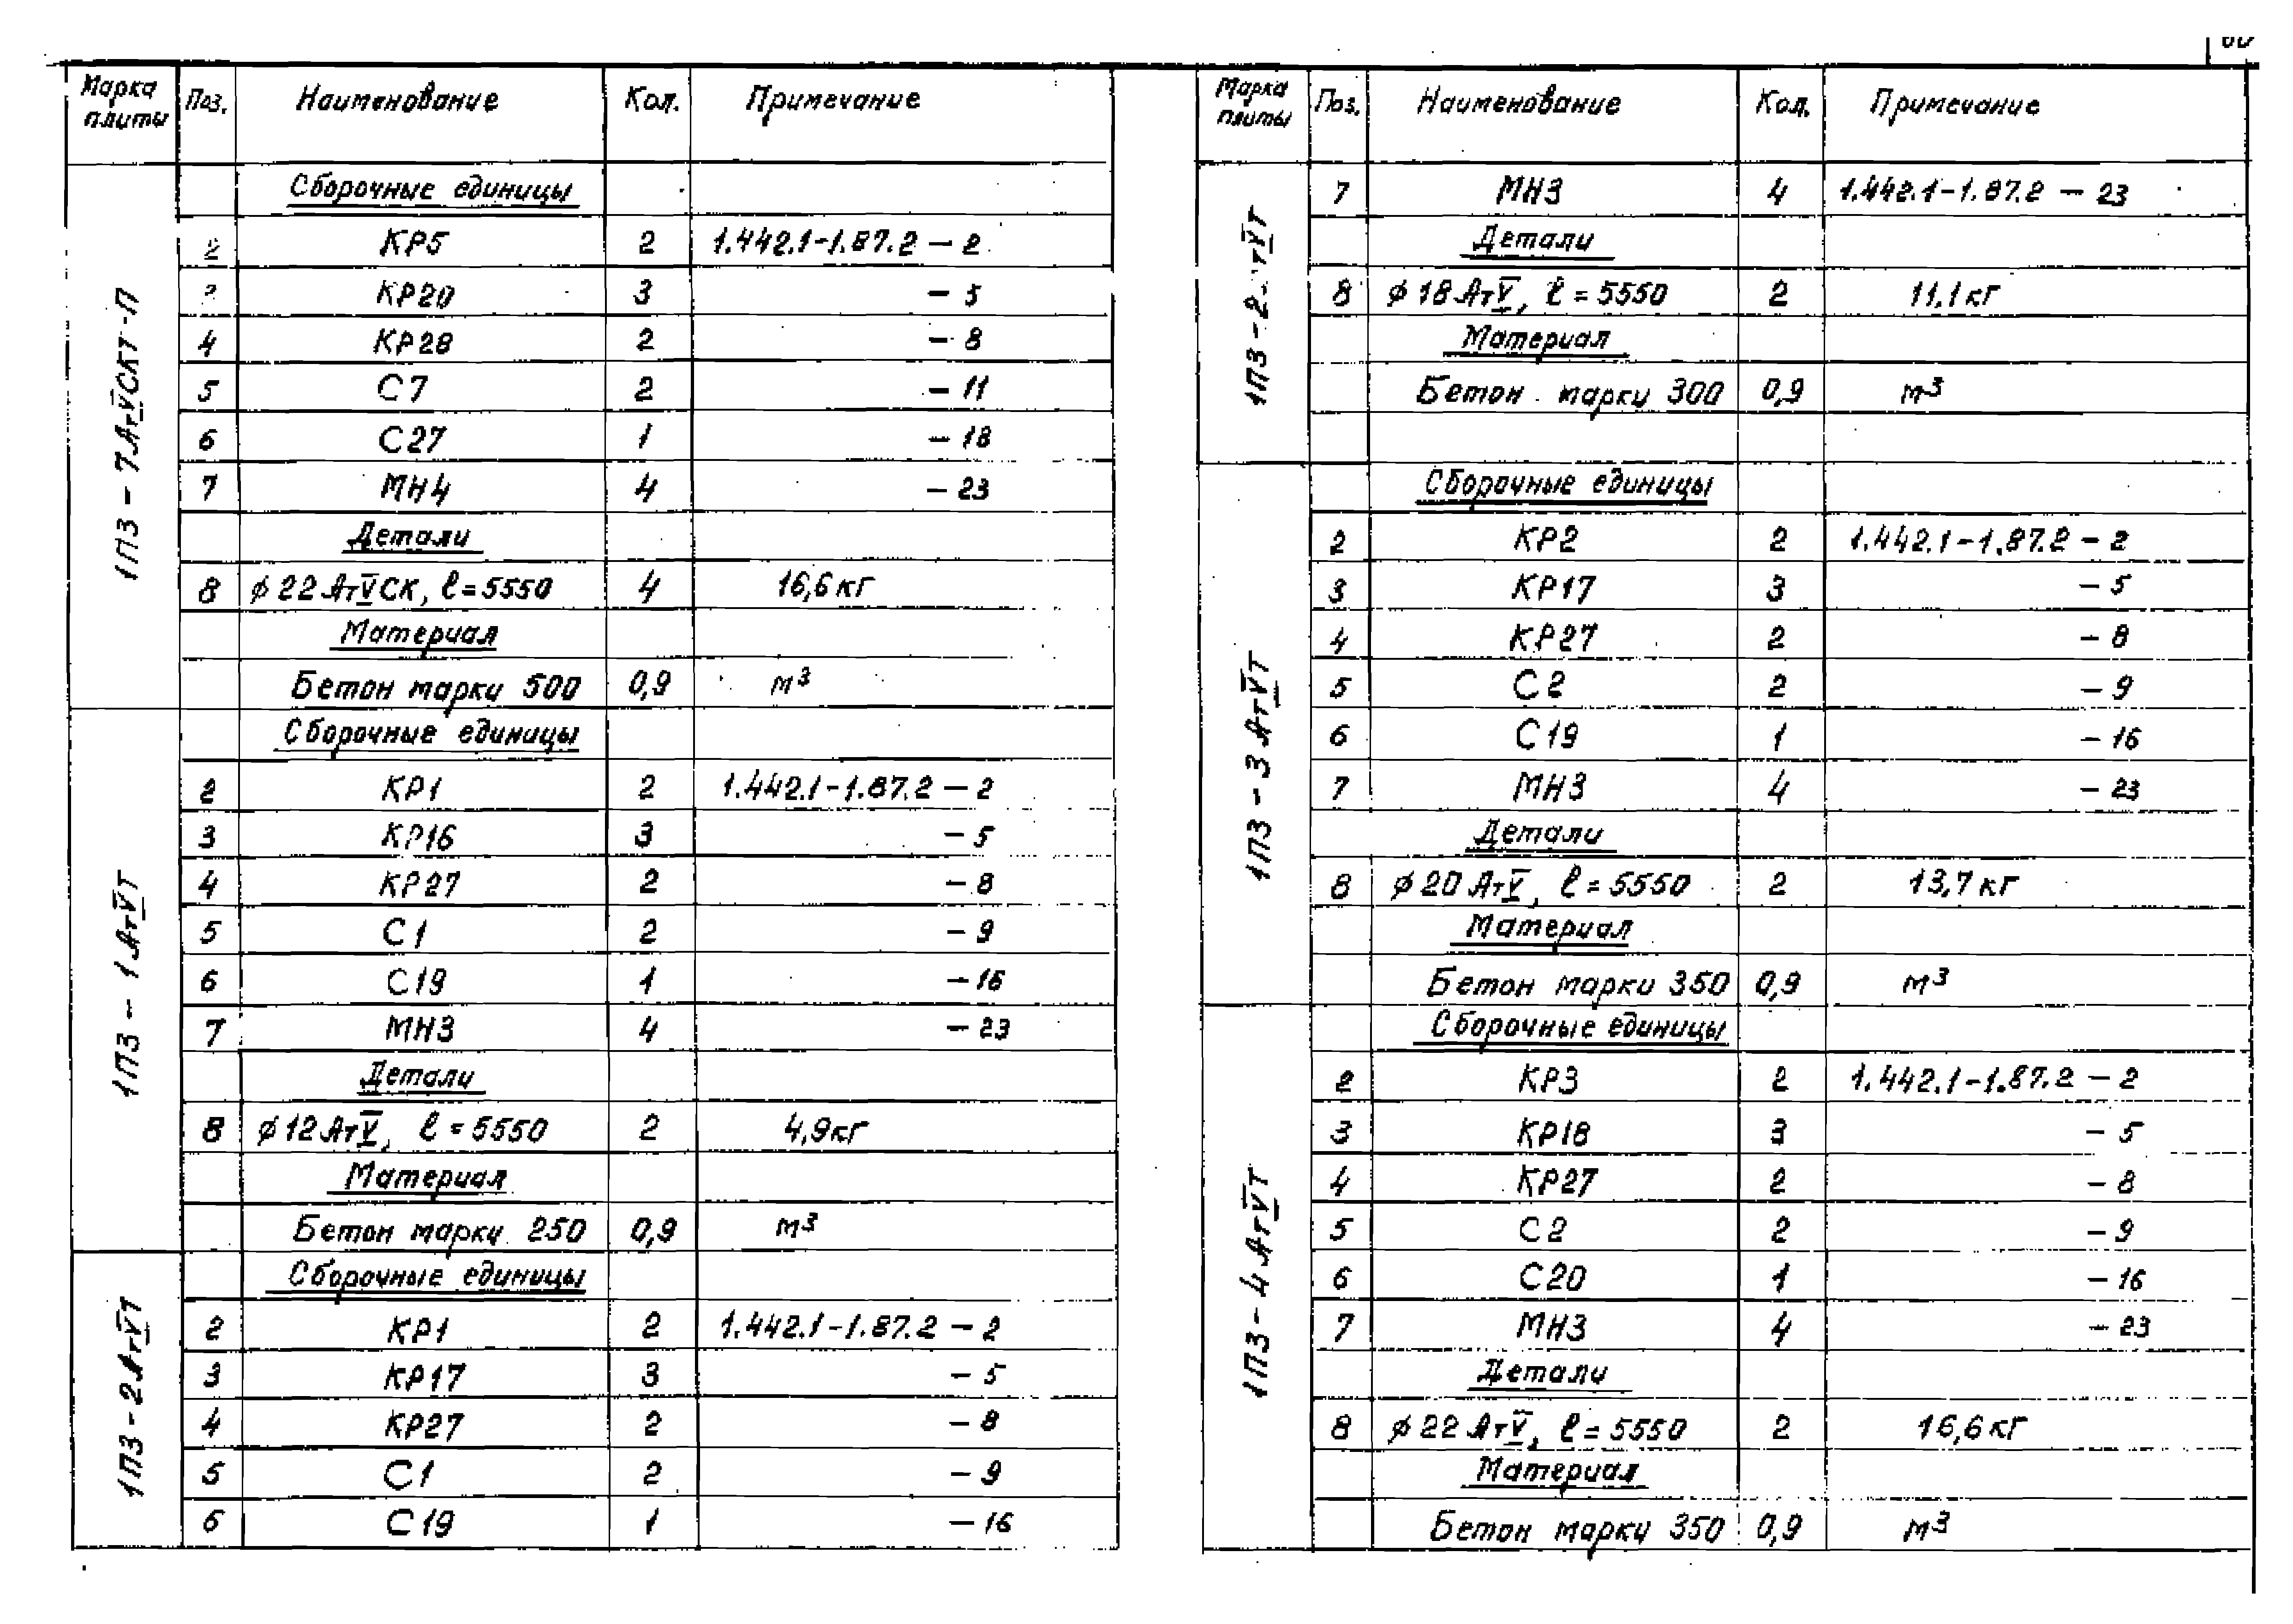 Марка плиты Поз. Наименование Кол. Примечание
1П3 - 7АтVСКТ-П
Сборочные единицы
2 КР5 2 1.442.1-1.87.2 - 2
КР20 3 - 5
4 КР28 2 - 8
5 С7 2 - 11
6 С27 1 - 18
7 МН4 4 - 23
Детали
8 ϕ22АтVСК, ℓ=5550 4 16,6кг
Материал
Бетон марки 500 0,9 м³
1П3 - 1АтVТ
Сборочные единицы
2 КР1 2 1.442.1-1.87.2 - 2
3 КР16 3 - 5
4 КР27 2 - 8
5 С1 2 - 9
6 С19 1 - 16
7 МН3 4 - 23
Детали
8 ϕ12АтV, ℓ=5550 2 4,9кг
Материал
Бетон марки 250 0,9 м³
1П3 - 2АтVТ
Сборочные единицы
2 КР1 2 1.442.1-1.87.2 - 2
3 КР17 3 - 5
4 КР27 2 - 8
5 С1 2 - 9
6 С19 1 - 16
Марка плиты Поз. Наименование Кол. Примечание
1П3 - 2 тVТ
7 МН3 4 1.442.1-1.87.2 - 23
Детали
8 ϕ18АтV, ℓ=5550 2 11,1кг
Материал
Бетон марки 300 0,9 м³
1П3 - 3АтVТ
Сборочные единицы
2 КР2 2 1.442.1-1.87.2 - 2
3 КР17 3 - 5
4 КР27 2 - 8
5 С2 2 - 9
6 С19 1 - 16
7 МН3 4 - 23
Детали
8 ϕ20АтV, ℓ=5550 2 13,7кг
Материал
Бетон марки 350 0,9 м³
1П3 - 4АтVТ
Сборочные единицы
2 КР3 2 1.442.1-1.87.2 - 2
3 КР18 3 - 5
4 КР27 2 - 8
5 С2 2 - 9
6 С20 1 - 16
7 МН3 4 - 23
Детали
8 ϕ22АтV, ℓ=5550 2 16,6кг
Материал
Бетон марки 350 0,9 м³